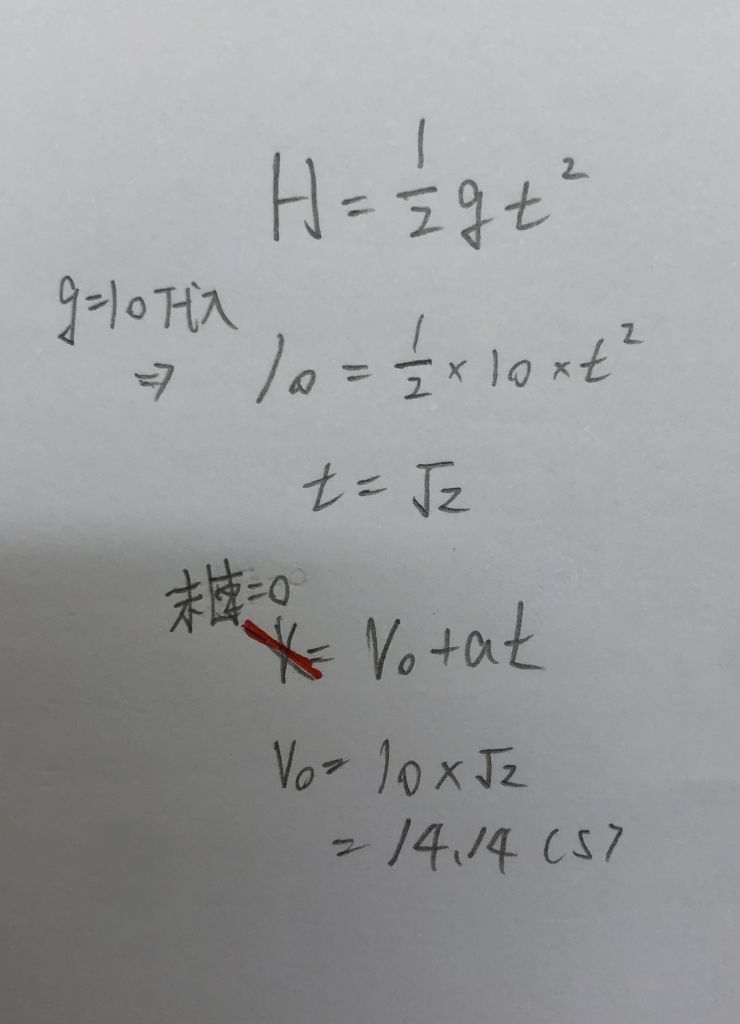 H = 1/2 g t²
g=10代入
⇒ 10 = 1/2 × 10 × t²
t = √2
末速=0
V = V₀ + at
V₀ = 10 × √2
= 14.14 (s)